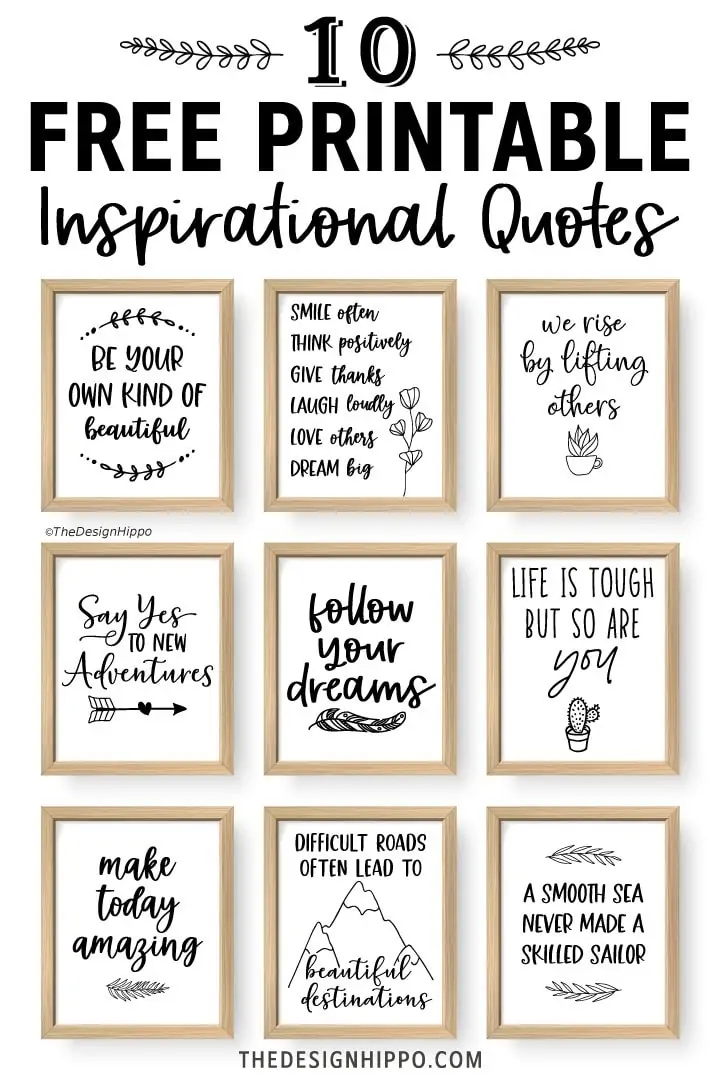 10
FREE PRINTABLE
Inspirational Quotes
BE YOUR
OWN KIND OF
beautiful
SMILE often
THINK positively
GIVE thanks
LAUGH loudly
LOVE others
DREAM big
we rise
by lifting
others
©TheDesignHippo
Say Yes
TO NEW
Adventures
follow
your
dreams
LIFE IS TOUGH
BUT SO ARE
you
make
today
amazing
DIFFICULT ROADS
OFTEN LEAD TO
beautiful
destinations
A SMOOTH SEA
NEVER MADE A
SKILLED SAILOR
THEDESIGNHIPPO.COM